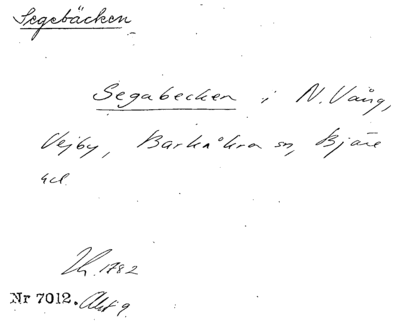 Segebäcken
Segabecken i N. Vång,
Vejby, Barkåkra sn, Bjäre
hd.
1782
Nr 7012. Akt 9